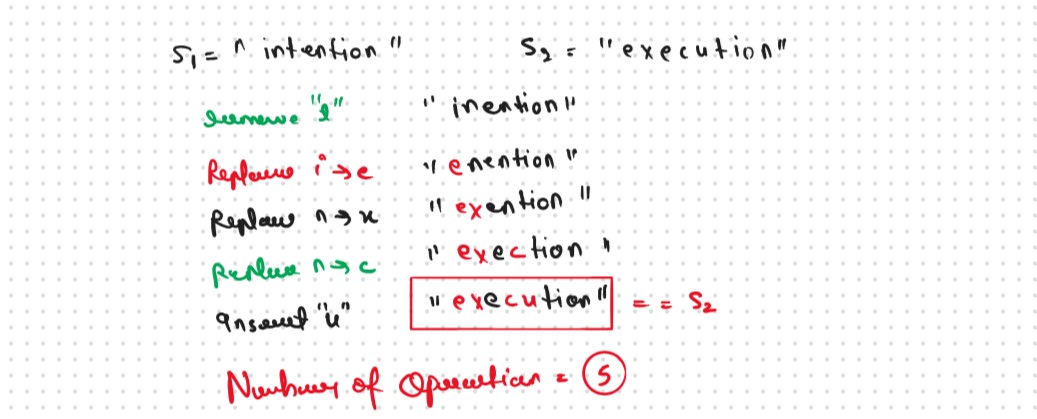 S1 = " intention " S2 = "execution"
remove "t" "inention"
Replace i→e "enention"
Replace n→x "exention"
Replace n→c "exection"
Insert "u" "execution" == S2
Number of Operation = 5